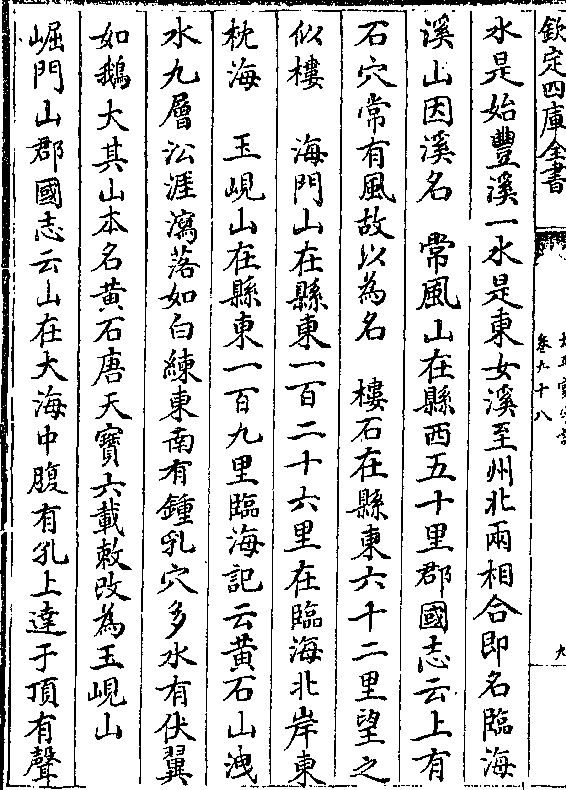 欽定四庫全書
卷九十八
九
水是始豐溪一水是東女溪至州北兩相合即名臨海
溪山因溪名　常風山在縣西五十里郡國志云上有
石穴常有風故以為名　樓石在縣東六十二里望之
似樓　海門山在縣東一百二十六里在臨海北岸東
枕海　玉峴山在縣東一百九里臨海記云黄石山洩
水九層㳂涯瀉落如白練東南有鍾乳穴多水有伏翼
如鵝大其山本名黄石唐天寶六載敕改為玉峴山
崛門山郡國志云山在大海中腹有孔上達于頂有聲